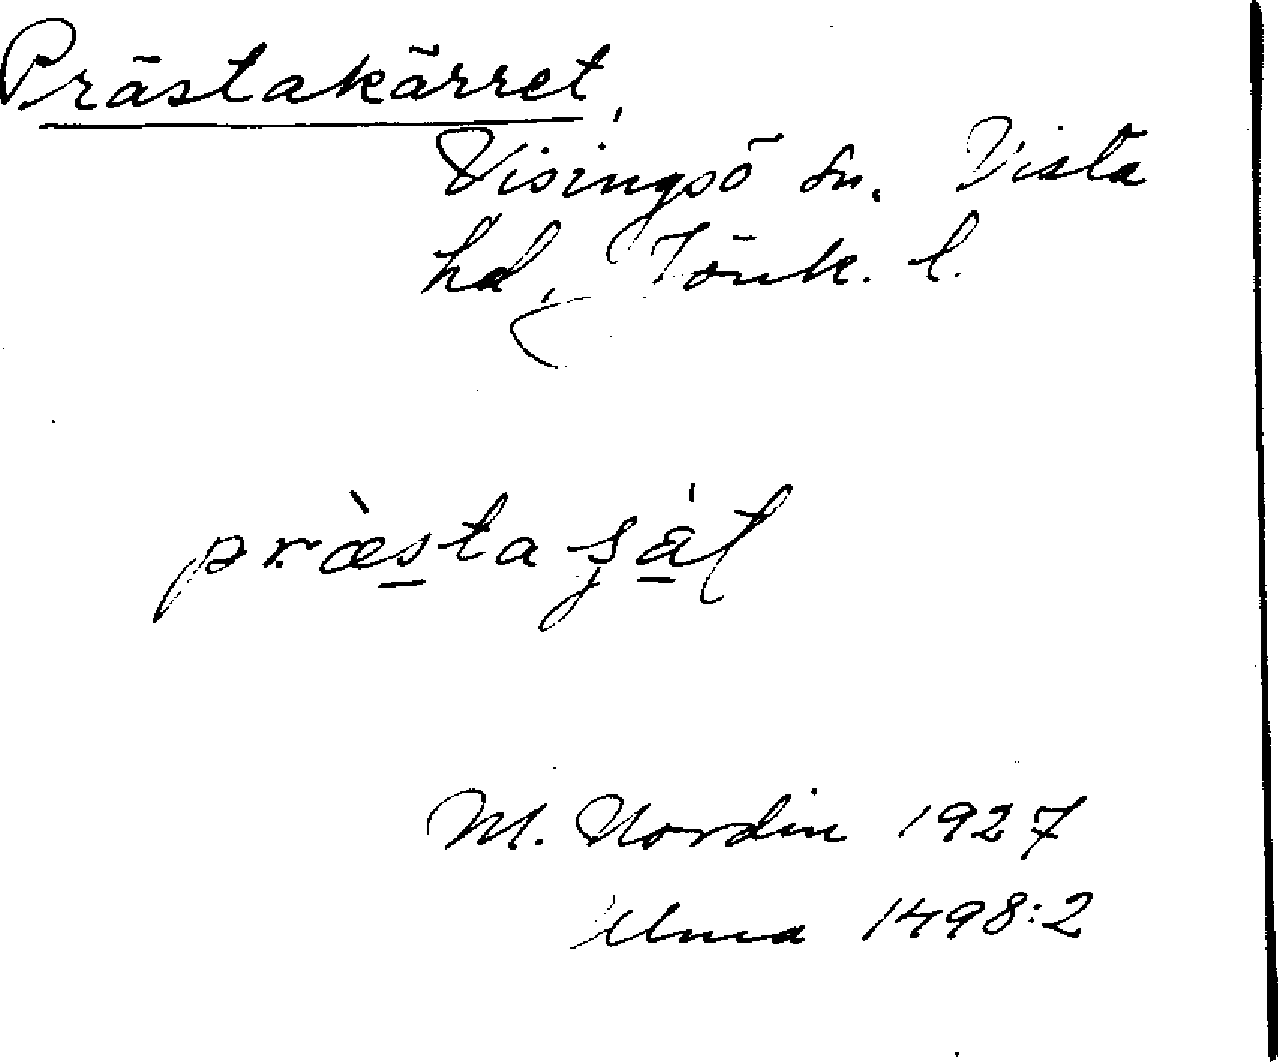 Prästakärret,
Visingsö sn. Vista
hd, Jönk. l.
præ̀sta
M. Nordin 1927
Ulma 1498:2